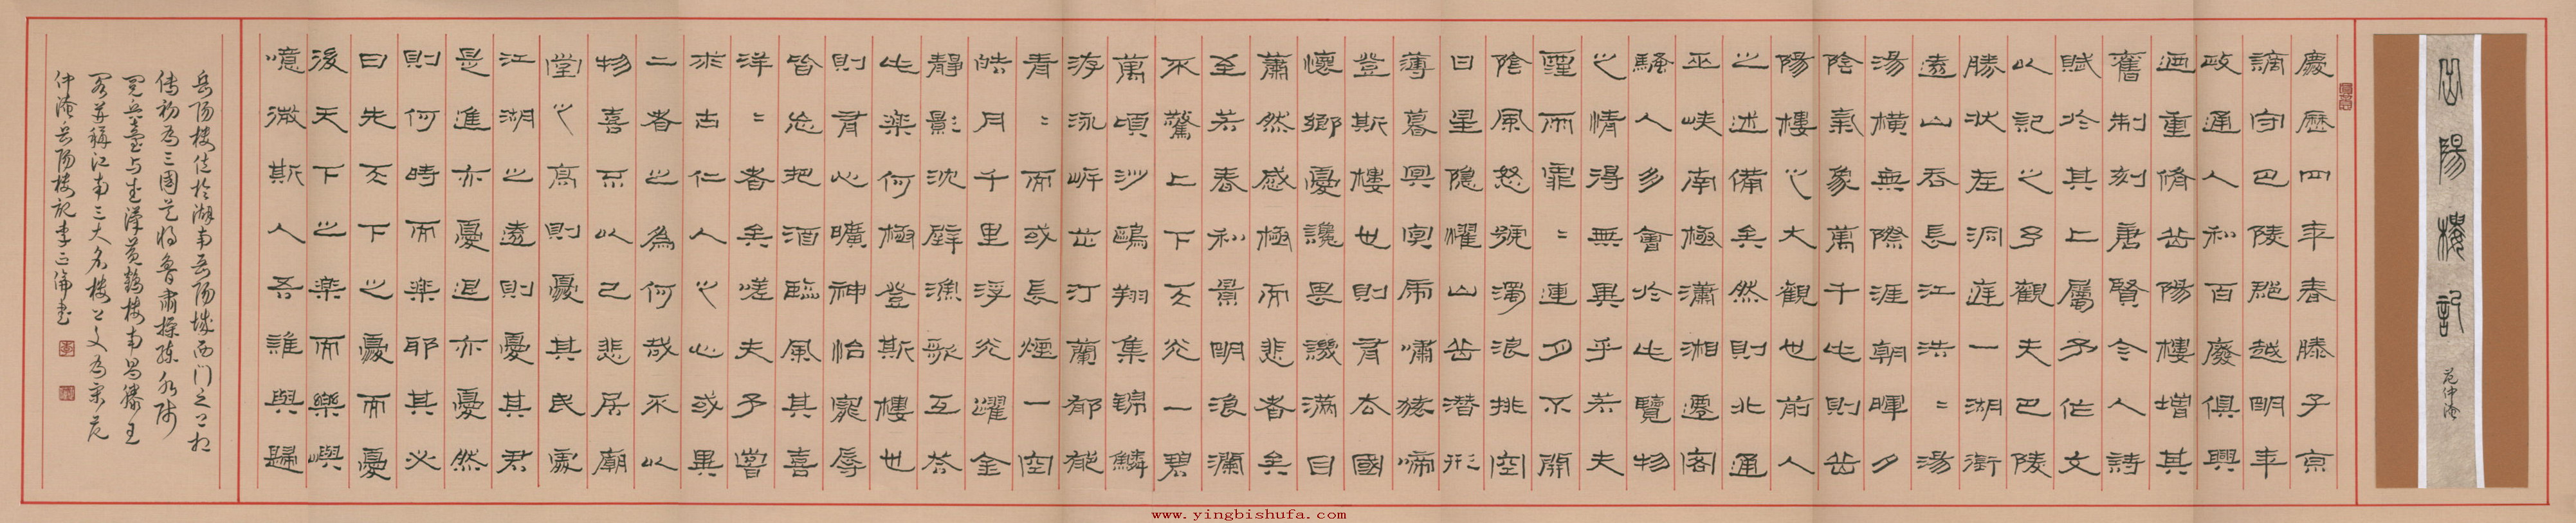 岳陽樓記
范仲淹
慶歷四年春滕子京
謫守巴陵郡越明年
政通人和百廢俱興
迺重脩岳陽樓增其
舊制刻唐賢今人詩
賦於其上屬予作文
以記之予觀夫巴陵
勝狀在洞庭一湖銜
遠山吞長江浩=湯
湯橫無際涯朝暉夕
陰氣象萬千此則岳
陽樓之大觀也前人
之述備矣然則北通
巫峽南極瀟湘遷客
騷人多會於此覽物
之情得無異乎若夫
霪雨霏=連月不開
陰風怒號濁浪排空
日星隱耀山岳潛形
薄暮冥冥虎嘯猿啼
登斯樓也則有去國
懷鄉憂讒畏譏滿目
蕭然感極而悲者矣
至若春和景明浪瀾
不驚上下天光一碧
萬頃沙鷗翔集錦鱗
游泳岸芷汀蘭郁
青=而或長煙一空
皓月千里浮光躍金
靜影沈璧漁歌互答
此樂何極登斯樓也
則有心曠神怡寵辱
皆忘把酒臨風其喜
洋=者矣嗟夫予嘗
求古仁人之心或異
二者之為何哉不以
物喜不以己悲居廟
堂之高則憂其民處
江湖之遠則憂其君
是進亦憂退亦憂然
則何時而樂耶其必
曰先天下之憂而憂
後天下之樂而樂歟
噫微斯人吾誰與歸
岳陽樓位於湖南岳陽城西門之上相
傳初為三國將魯肅操練水師
閱兵臺与武漢黃鶴樓南昌滕王
閣并稱江南三大名樓上文為宋范
仲淹岳陽樓記李正書
www.yingbishufa.com